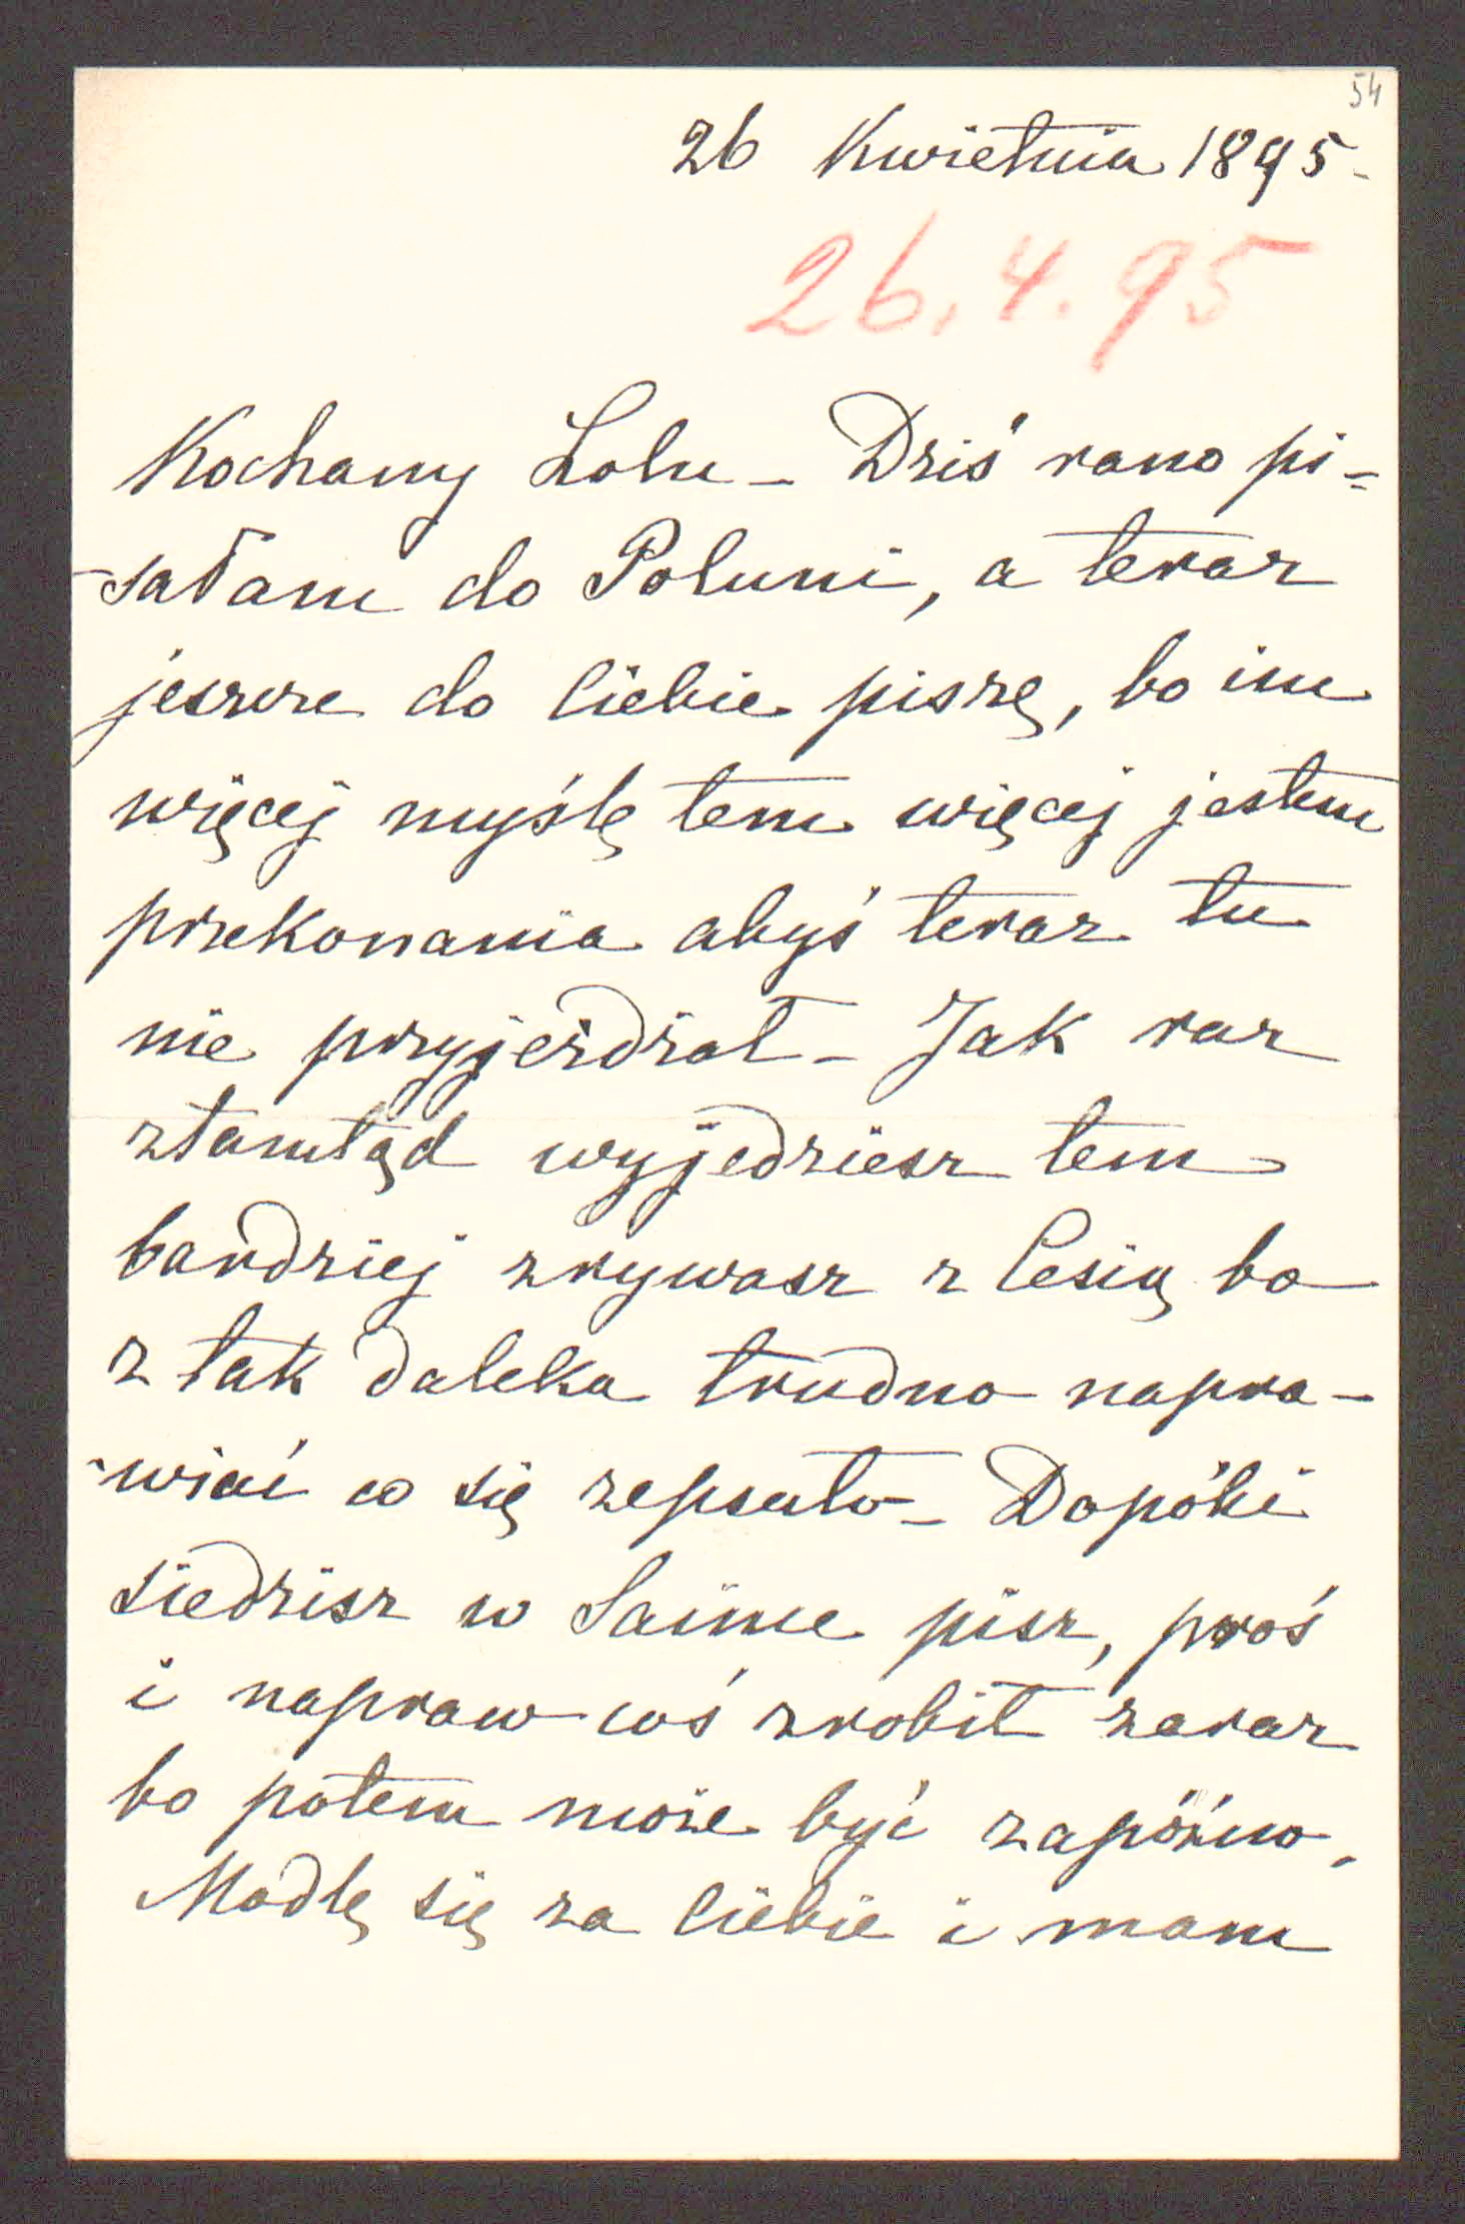 54
26 Kwietnia 1895.
26.4.95
Kochany Lolu – Dziś rano pi=
-sałam do Poluni, a teraz
jeszcze do Ciebie piszę, bo im
więcej myślę tem więcej jestem
przekonania abyś teraz tu
nie przyjeżdżał – Jak raz
ztamtąd wyjedziesz tem
bardziej zrywasz z Cesią bo
z tak daleka trudno napra-
-wiać co się zepsuło – Dopóki
siedzisz w Saime pisz, proś
i napraw coś zrobił zaraz
bo potem może być zapóźno.
Modlę się za Ciebie i mam